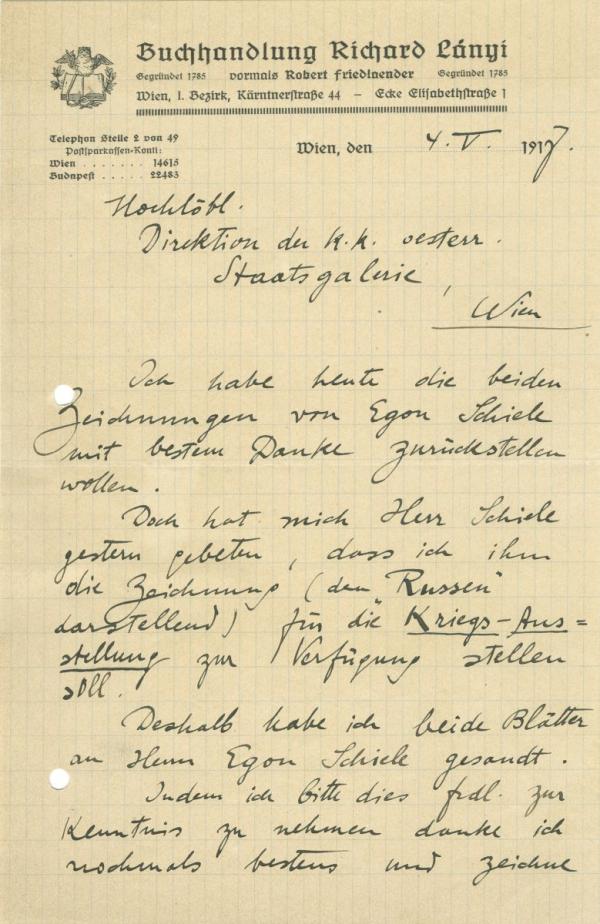 Buchhandlung Richard Lányi
Gegründet 1785 vormals Robert Friedlaender Gegründet 1785
Wien, I. Bezirk, Kärntnerstraße 44 – Ecke Elisabethstraße 1
Telephon Stelle 2 von 49
Postsparkassen-Konti:
Wien . . . . . . . 14615
Budapest . . . . . 22483
Wien, den 4. V. 1917.
Hochlöbl.
Direktion der k. k. oesterr.
Staatsgalerie,
Wien
Ich habe heute die beiden
Zeichnungen von Egon Schiele
mit bestem Danke zurückstellen
wollen.
Doch hat mich Herr Schiele
gestern gebeten, dass ich ihm
die Zeichnung (den "Russen"
darstellend) für die Kriegs-Aus=
stellung zur Verfügung stellen
soll.
Deshalb habe ich beide Blätter
an Herrn Egon Schiele gesandt.
Indem ich bitte dies frdl. zur
Kenntnis zu nehmen danke ich
nochmals bestens und zeichne